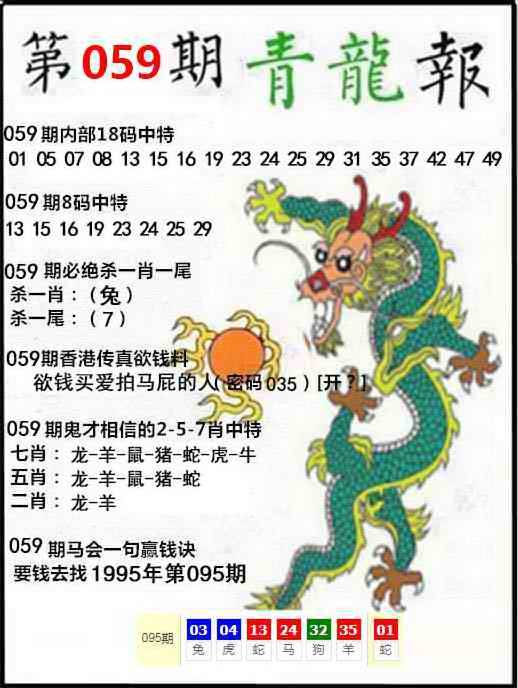 第059期 青龍報
059期内部18码中特
01 05 07 08 13 15 16 19 23 24 25 29 31 35 37 42 47 49
059期8码中特
13 15 16 19 23 24 25 29
059 期必绝杀一肖一尾
杀一肖：（兔）
杀一尾：（7）
059期香港传真欲钱料
欲钱买爱拍马屁的人(密码035）[开？]
059期鬼才相信的2-5-7肖中特
七肖：龙-羊-鼠-猪-蛇-虎-牛
五肖：龙-羊-鼠-猪-蛇
二肖：龙-羊
059期马会一句赢钱诀
要钱去找1995年第095期
095期 03 04 13 24 32 35 01
兔 虎 蛇 马 狗 羊 蛇